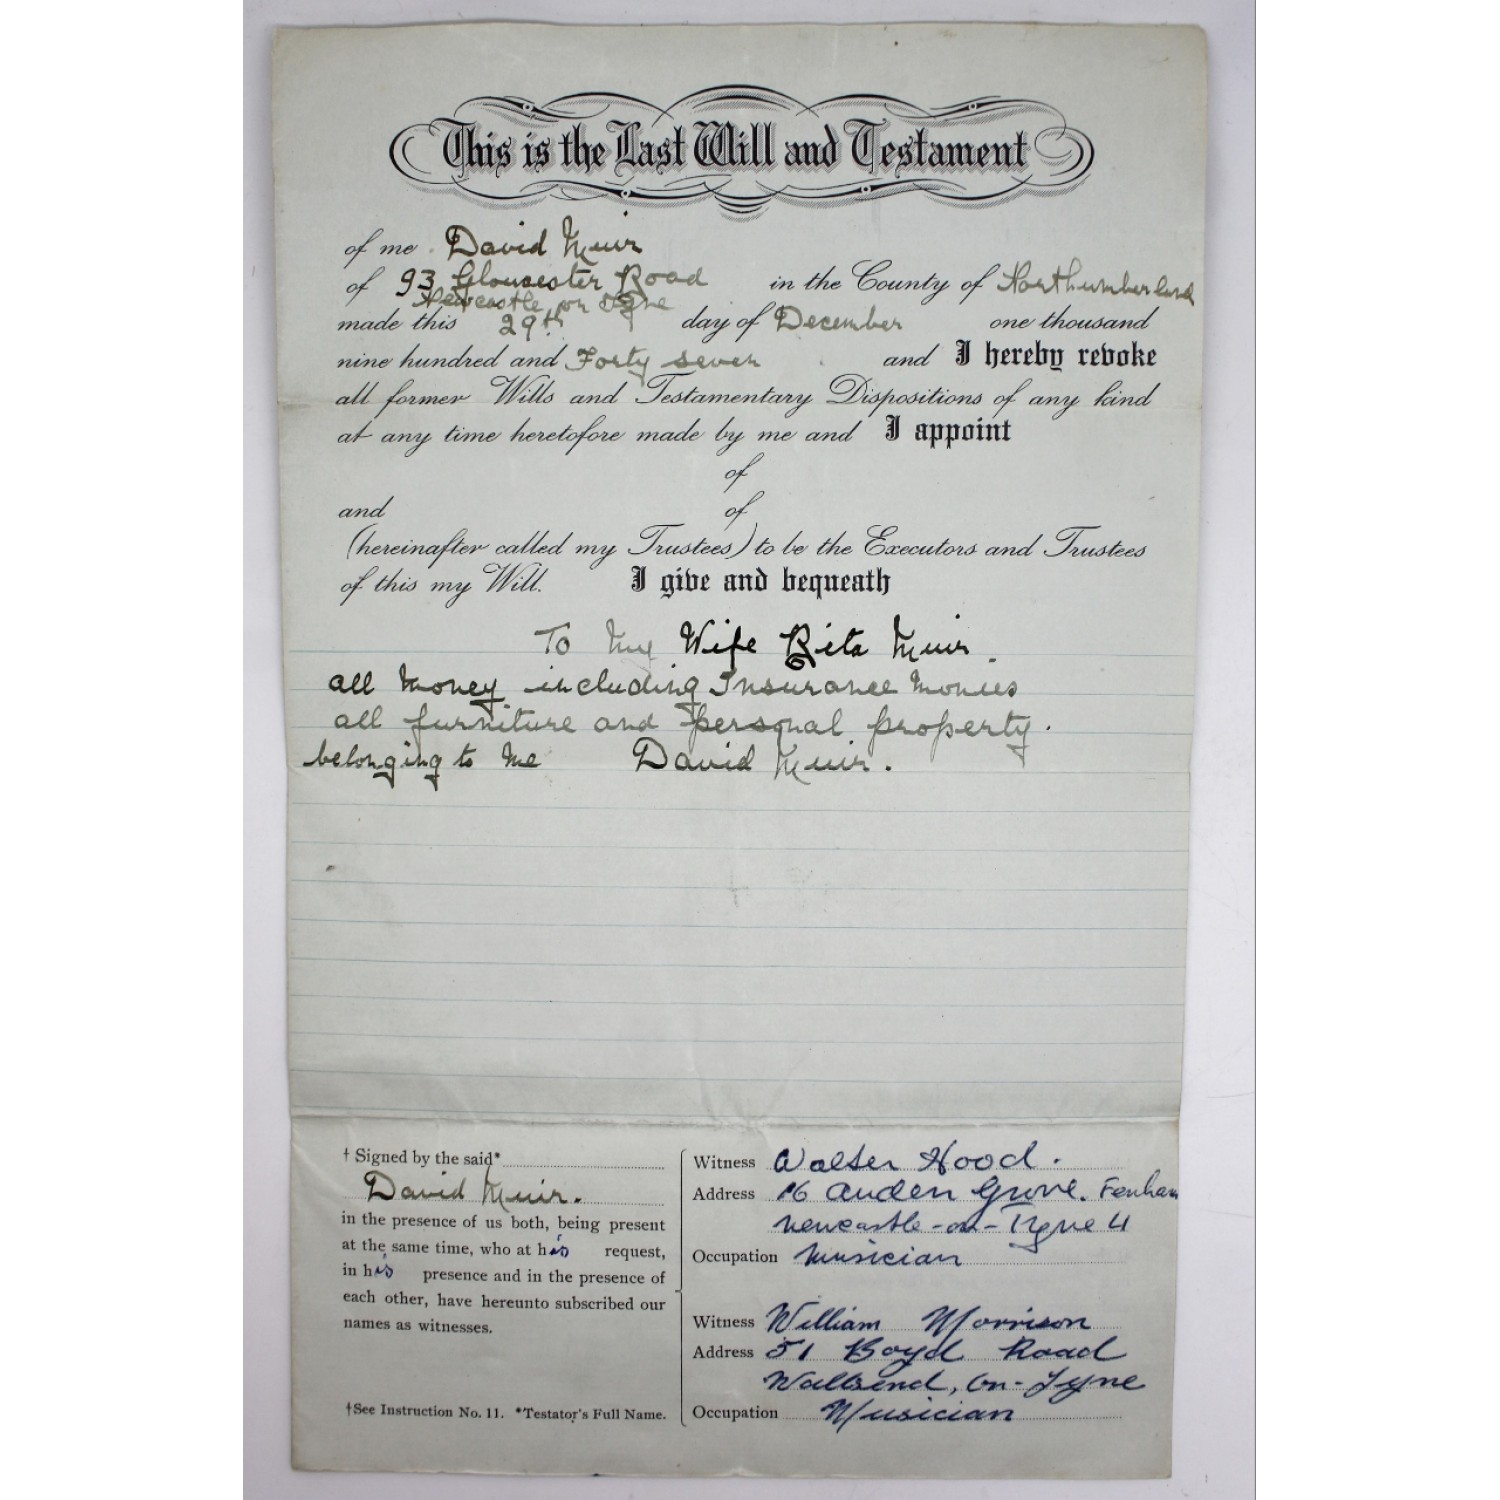 This is the Last Will and Testament
of me David Muir
of 93 Gloucester Road in the County of Northumberland
Newcastle on Tyne
made this 29th day of December one thousand
nine hundred and Forty seven and I hereby revoke
all former Wills and Testamentary Dispositions of any kind
at any time heretofore made by me and I appoint
of
and of
(hereinafter called my Trustees) to be the Executors and Trustees
of this my Will. I give and bequeath
To My Wife Rita Muir.
all money including Insurance Monies
all furniture and personal property.
belonging to me David Muir.
† Signed by the said*
David Muir.
in the presence of us both, being present
at the same time, who at his request,
in his presence and in the presence of
each other, have hereunto subscribed our
names as witnesses.
†See Instruction No. 11. *Testator's Full Name.
Witness Walter Hood.
Address 16 Auden Grove. Fenham
Newcastle-on-Tyne 4
Occupation Musician
Witness William Morrison
Address 51 Boyd Road
Wallsend, On-Tyne
Occupation Musician